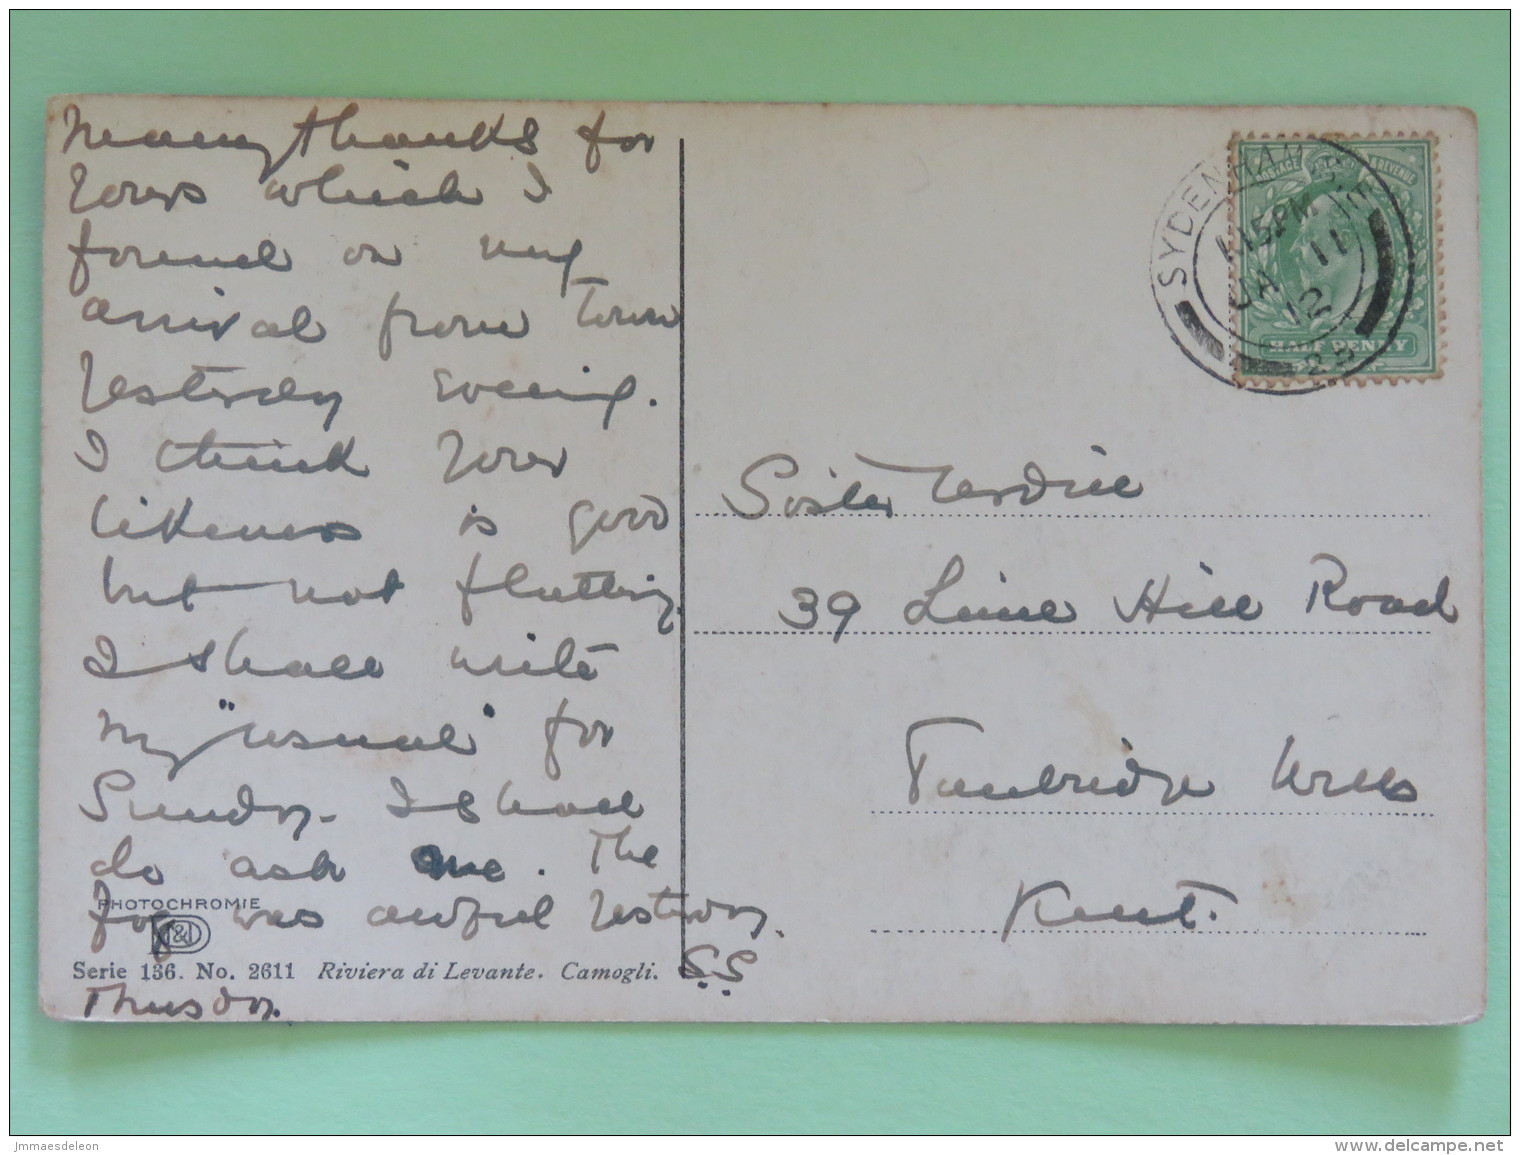 Many thanks for
yours which I
found on my
arrival from Town
Yesterday evening.
I think your
likeness is good
but not flattering.
I shall write
my "usual" for
Sunday. I shall
do ask one. The
fog was awful Yesterday.
S.S.
Thursday.
PHOTOCHROMIE
Serie 136. No. 2611 Riviera di Levante. Camogli.
SYDENHAM S.E
1.15PM
JA 11
12
23
POSTAGE & REVENUE
HALF PENNY
Sister
39 Lime Hill Road
Tunbridge Wells
Kent.
jmmaesdeleon
www.delcampe.net